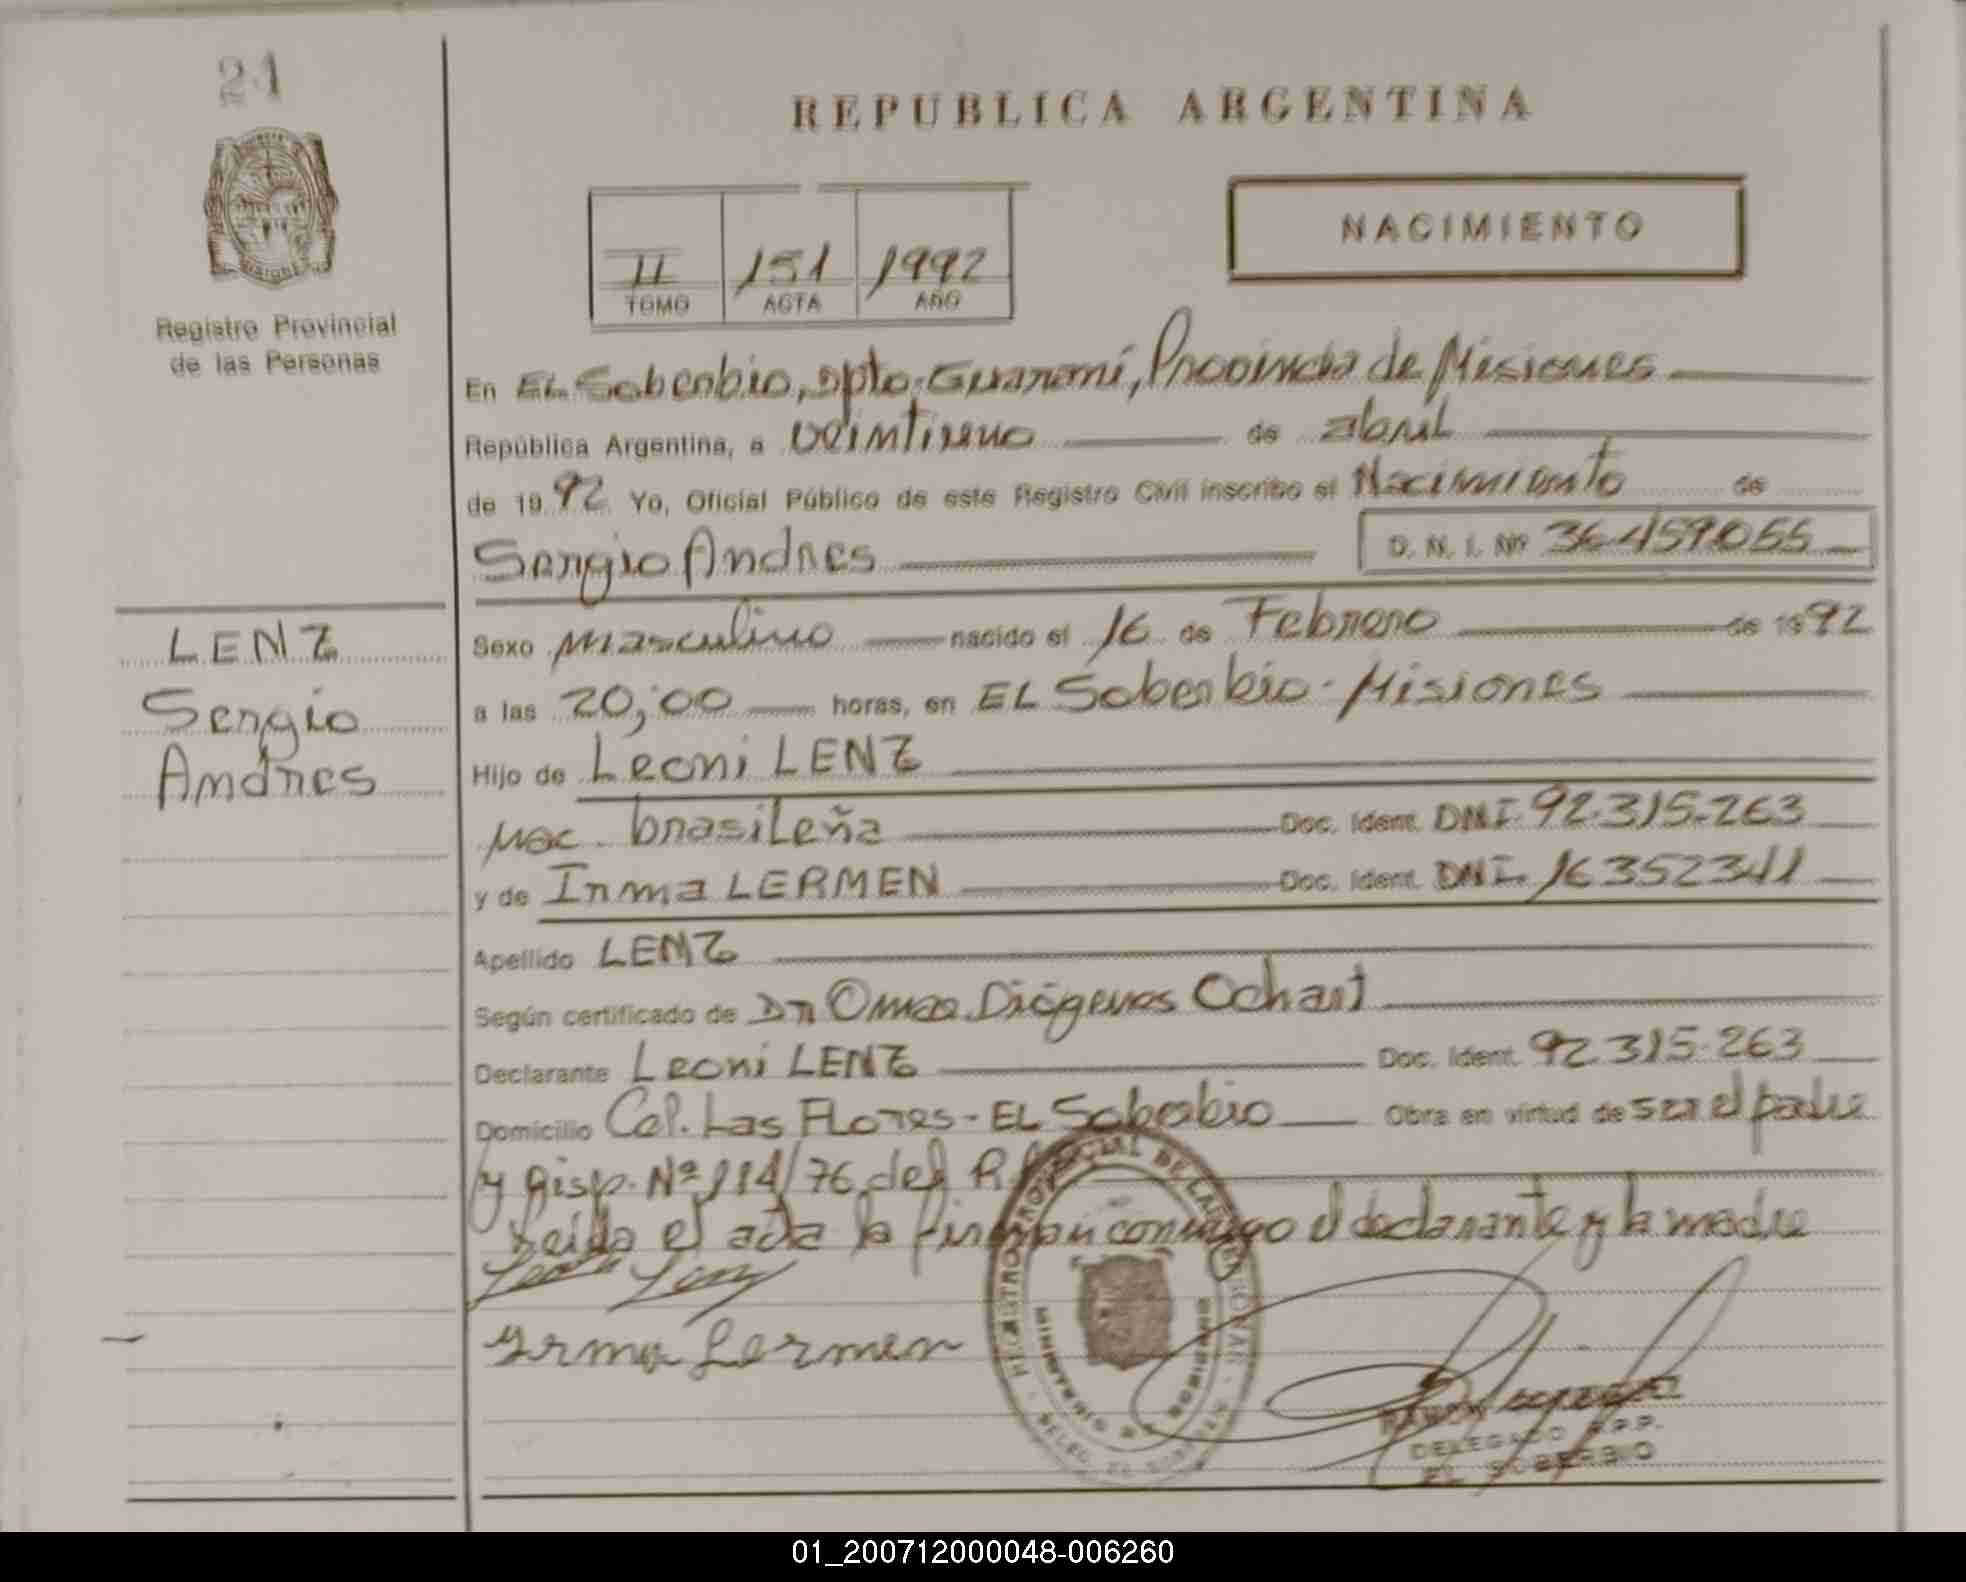 21
Registro Provincial
de las Personas
LENZ
Sergio
Andres
REPUBLICA ARGENTINA
NACIMIENTO
II 151 1992
TOMO ACTA AÑO
En EL Soberbio, Dpto. Guaraní, Provincia de Misiones
República Argentina, a veintiuno de abril
de 1992 Yo, Oficial Público de este Registro Civil inscribo el Nacimiento de
Sergio Andres D. N. I. Nº 36.459.055
Sexo masculino nacido el 16 de Febrero de 1992
a las 20;00 horas, en EL Soberbio - Misiones
Hijo de Leoni LENZ
nac. brasileña Doc. Ident. DNI. 92.315.263
y de Irma LERMEN Doc. Ident. DNI. 16352341
Apellido LENZ
Según certificado de Dr Omar Diógenes Ochart
Declarante Leoni LENZ Doc. Ident. 92.315.263
Domicilio Col. Las Flores - EL Soberbio Obra en virtud de ser el padre
y disp. Nº 114/76 del R.
Leída el acta la firman conmigo el declarante y la madre
Irma Lermen
DELEGADO R.P.P.
EL SOBERBIO
01_200712000048-006260